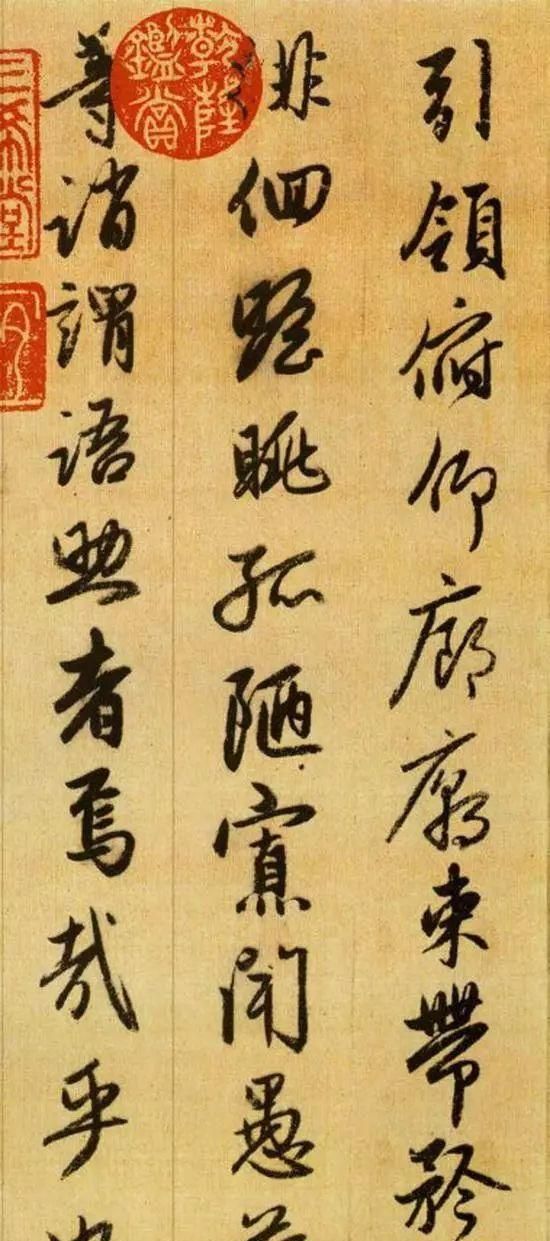 引領俯仰廊廟束帶矜
徘徊瞻眺孤陋寡聞愚
等誚謂語助者焉哉乎
乾隆鑑賞